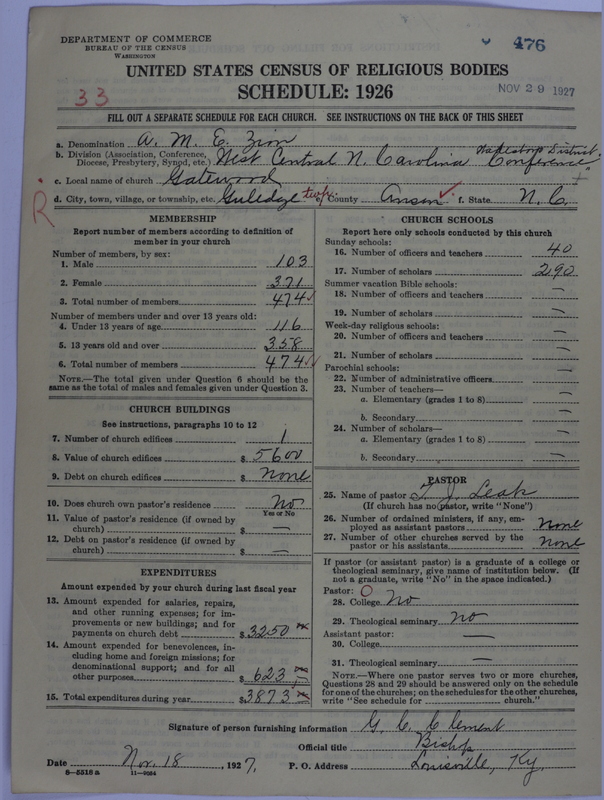 DEPARTMENT OF COMMERCE
BUREAU OF THE CENSUS
WASHINGTON
476
UNITED STATES CENSUS OF RELIGIOUS BODIES
SCHEDULE: 1926
NOV 29 1927
33
FILL OUT A SEPARATE SCHEDULE FOR EACH CHURCH. SEE INSTRUCTIONS ON THE BACK OF THIS SHEET
a. Denomination A. M. E. Zion
b. Division (Association, Conference, Diocese, Presbytery, Synod, etc.) West Central N. Carolina Conference Wadesboro District
c. Local name of church Gatewood
d. City, town, village, or township, etc. Gulledge twp. e. County Anson f. State N. C.
R
MEMBERSHIP
Report number of members according to definition of
member in your church
Number of members, by sex:
1. Male 103
2. Female 371
3. Total number of members 474
Number of members under and over 13 years old:
4. Under 13 years of age 116
5. 13 years old and over 358
6. Total number of members 474
NOTE.—The total given under Question 6 should be
same as the total of males and females given under Question 3.
CHURCH BUILDINGS
See instructions, paragraphs 10 to 12
7. Number of church edifices 1
8. Value of church edifices $ 5600
9. Debt on church edifices $ None
10. Does church own pastor's residence No
Yes or No
11. Value of pastor's residence (if owned by
church) $ —
12. Debt on pastor's residence (if owned by
church) $ —
EXPENDITURES
Amount expended by your church during last fiscal year
13. Amount expended for salaries, repairs,
and other running expenses; for im-
provements or new buildings; and for
payments on church debt $ 3250
14. Amount expended for benevolences, in-
cluding home and foreign missions; for
denominational support; and for all
other purposes $ 623
15. Total expenditures during year $ 3873
CHURCH SCHOOLS
Report here only schools conducted by this church
Sunday schools:
16. Number of officers and teachers 40
17. Number of scholars 290
Summer vacation Bible schools:
18. Number of officers and teachers —
19. Number of scholars —
Week-day religious schools:
20. Number of officers and teachers —
21. Number of scholars —
Parochial schools:
22. Number of administrative officers —
23. Number of teachers—
a. Elementary (grades 1 to 8) —
b. Secondary —
24. Number of scholars—
a. Elementary (grades 1 to 8) —
b. Secondary —
PASTOR
25. Name of pastor T. J. Leak
(If church has no pastor, write "None")
26. Number of ordained ministers, if any, em-
ployed as assistant pastors None
27. Number of other churches served by the
pastor or his assistants None
If pastor (or assistant pastor) is a graduate of a college or
theological seminary, give name of institution below. (If
not a graduate, write "No" in the space indicated.)
Pastor: O
28. College No
29. Theological seminary No
Assistant pastor:
30. College —
31. Theological seminary —
NOTE.—Where one pastor serves two or more churches,
Questions 28 and 29 should be answered only on the schedule
for one of the churches; on the schedules for the other churches,
write "See schedule for church."
Signature of person furnishing information G. C. Clement
Official title Bishop
Date Nov. 18, 1927. P. O. Address Louisville, Ky.
8—5518 a 11—9034